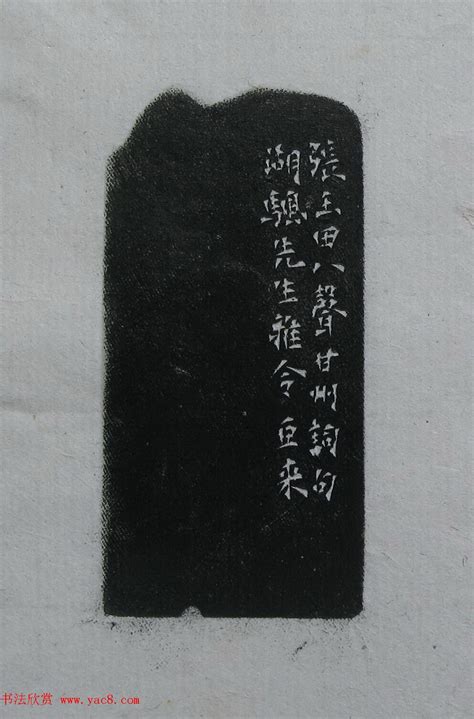 張玉田八聲甘州詞句
湖驄先生雅令 巨来
书法欣赏 www.yac8.com